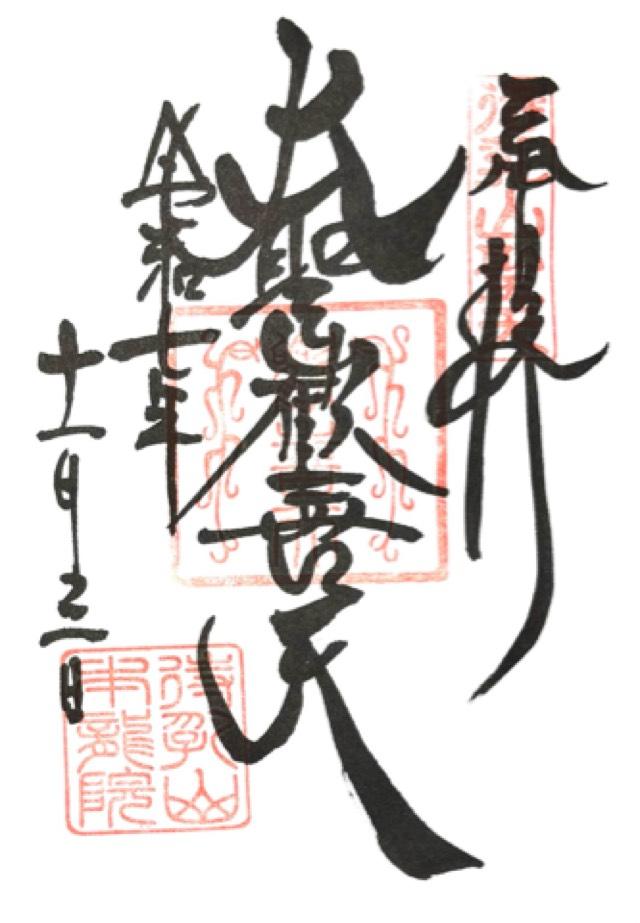 奉拝
大聖歓喜天
令和七年
十一月三日
待乳山
本龍院